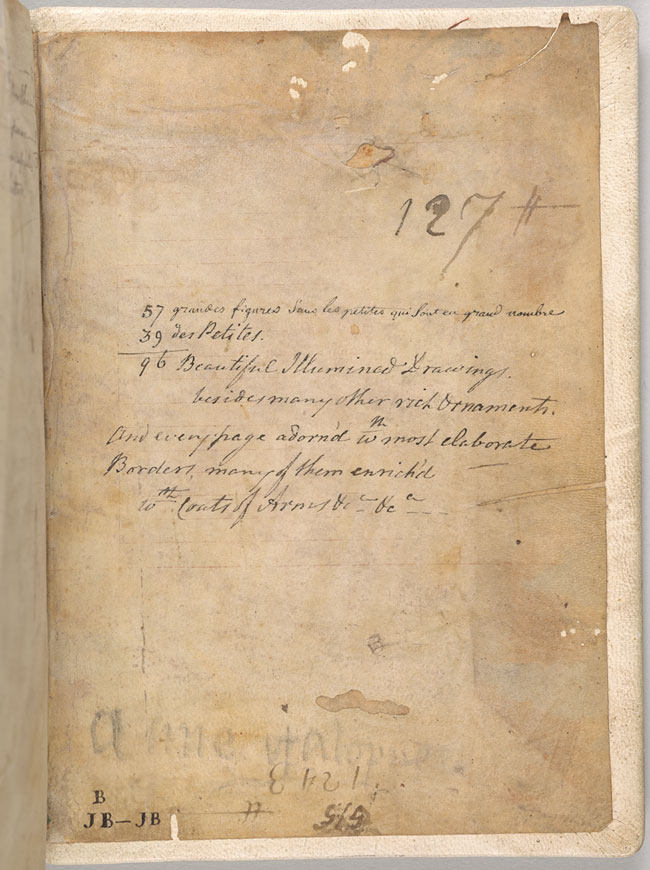 127 #
57 grandes figures Sans les petites qui Sont en grand nombre
39 des Petites.
96 Beautiful Illumined Drawings.
besides many other rich Ornaments.
And every page adorn'd wth most elaborate
Borders, many of them enrich'd
wth Coats of Arms &ca &ca
B
B
JB—JB